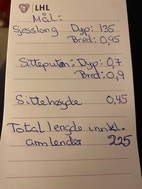 LHL
Mål:
Sjeselong Dyp: 135
Bred: 0,95
Sitteputen: Dyp: 0,7
Bred: 0,9
Sittehøyde 0,45
Total lengde innkl.
armlender 225